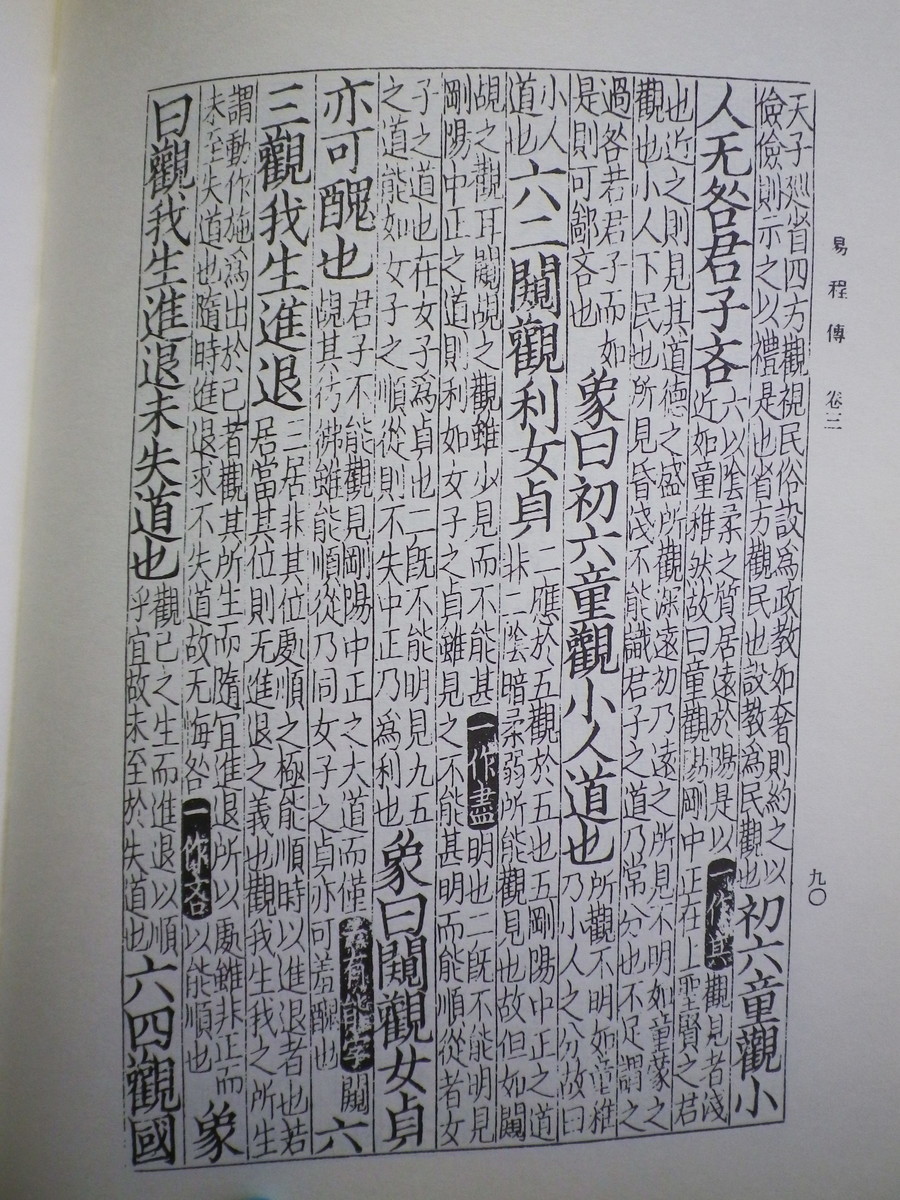 易程傳 卷三
九〇
天子廵省四方觀視民俗設爲政教如奢則約之以
儉儉則示之以禮是也省方觀民也設教為民觀也
初六童觀小
人无咎君子吝
六以陰柔之質居遠於陽是以一作其觀見者淺
近如童稚然故曰童觀陽剛中正在上聖賢之君
也近之則見其道德之盛所觀深遠初乃遠之所見不明如童蒙之
觀也小人下民也所見昏淺不能識君子之道乃常分也不足謂之
過咎若君子而如
是則可鄙吝也
象曰初六童觀小人道也
所觀不明如童稚
乃小人之分故曰
小人
道也
六二闚觀利女貞
二應於五觀於五也五剛陽中正之道
非二陰暗柔弱所能觀見也故但如闚
覘之觀耳闚覘之觀雖少見而不能甚一作盡明也二旣不能明見
剛陽中正之道則利如女子之貞雖見之不能甚明而能順從者女
子之道也在女子爲貞也二旣不能明見九五
之道能如女子之順從則不失中正乃爲利也
象曰闚觀女貞
亦可醜也
君子不能觀見剛陽中正之大道而僅一有能字闚
覘其彷彿雖能順從乃同女子之貞亦可羞醜也
六
三觀我生進退
三居非其位處順之極能順時以進退者也若
居當其位則无進退之義也觀我生我之所生
謂動作施爲出於己者觀其所生而隨宜進退所以處雖非正而
未至失道也隨時進退求不失道故无悔咎一作吝以能順也
象
曰觀我生進退未失道也
觀己之生而進退以順
乎宜故未至於失道也
六四觀國